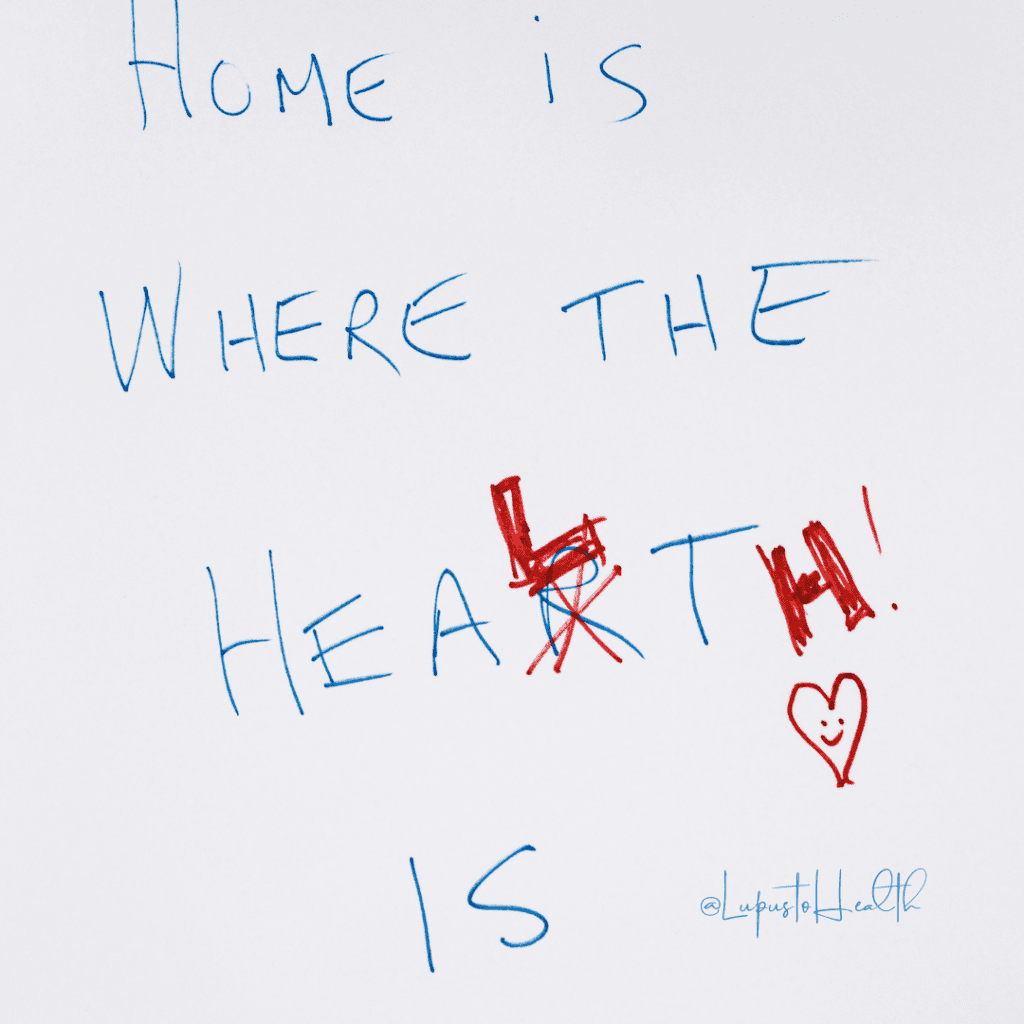 HOME iS
WHERE THE
HEALTH!
IS
@LupustoHealth